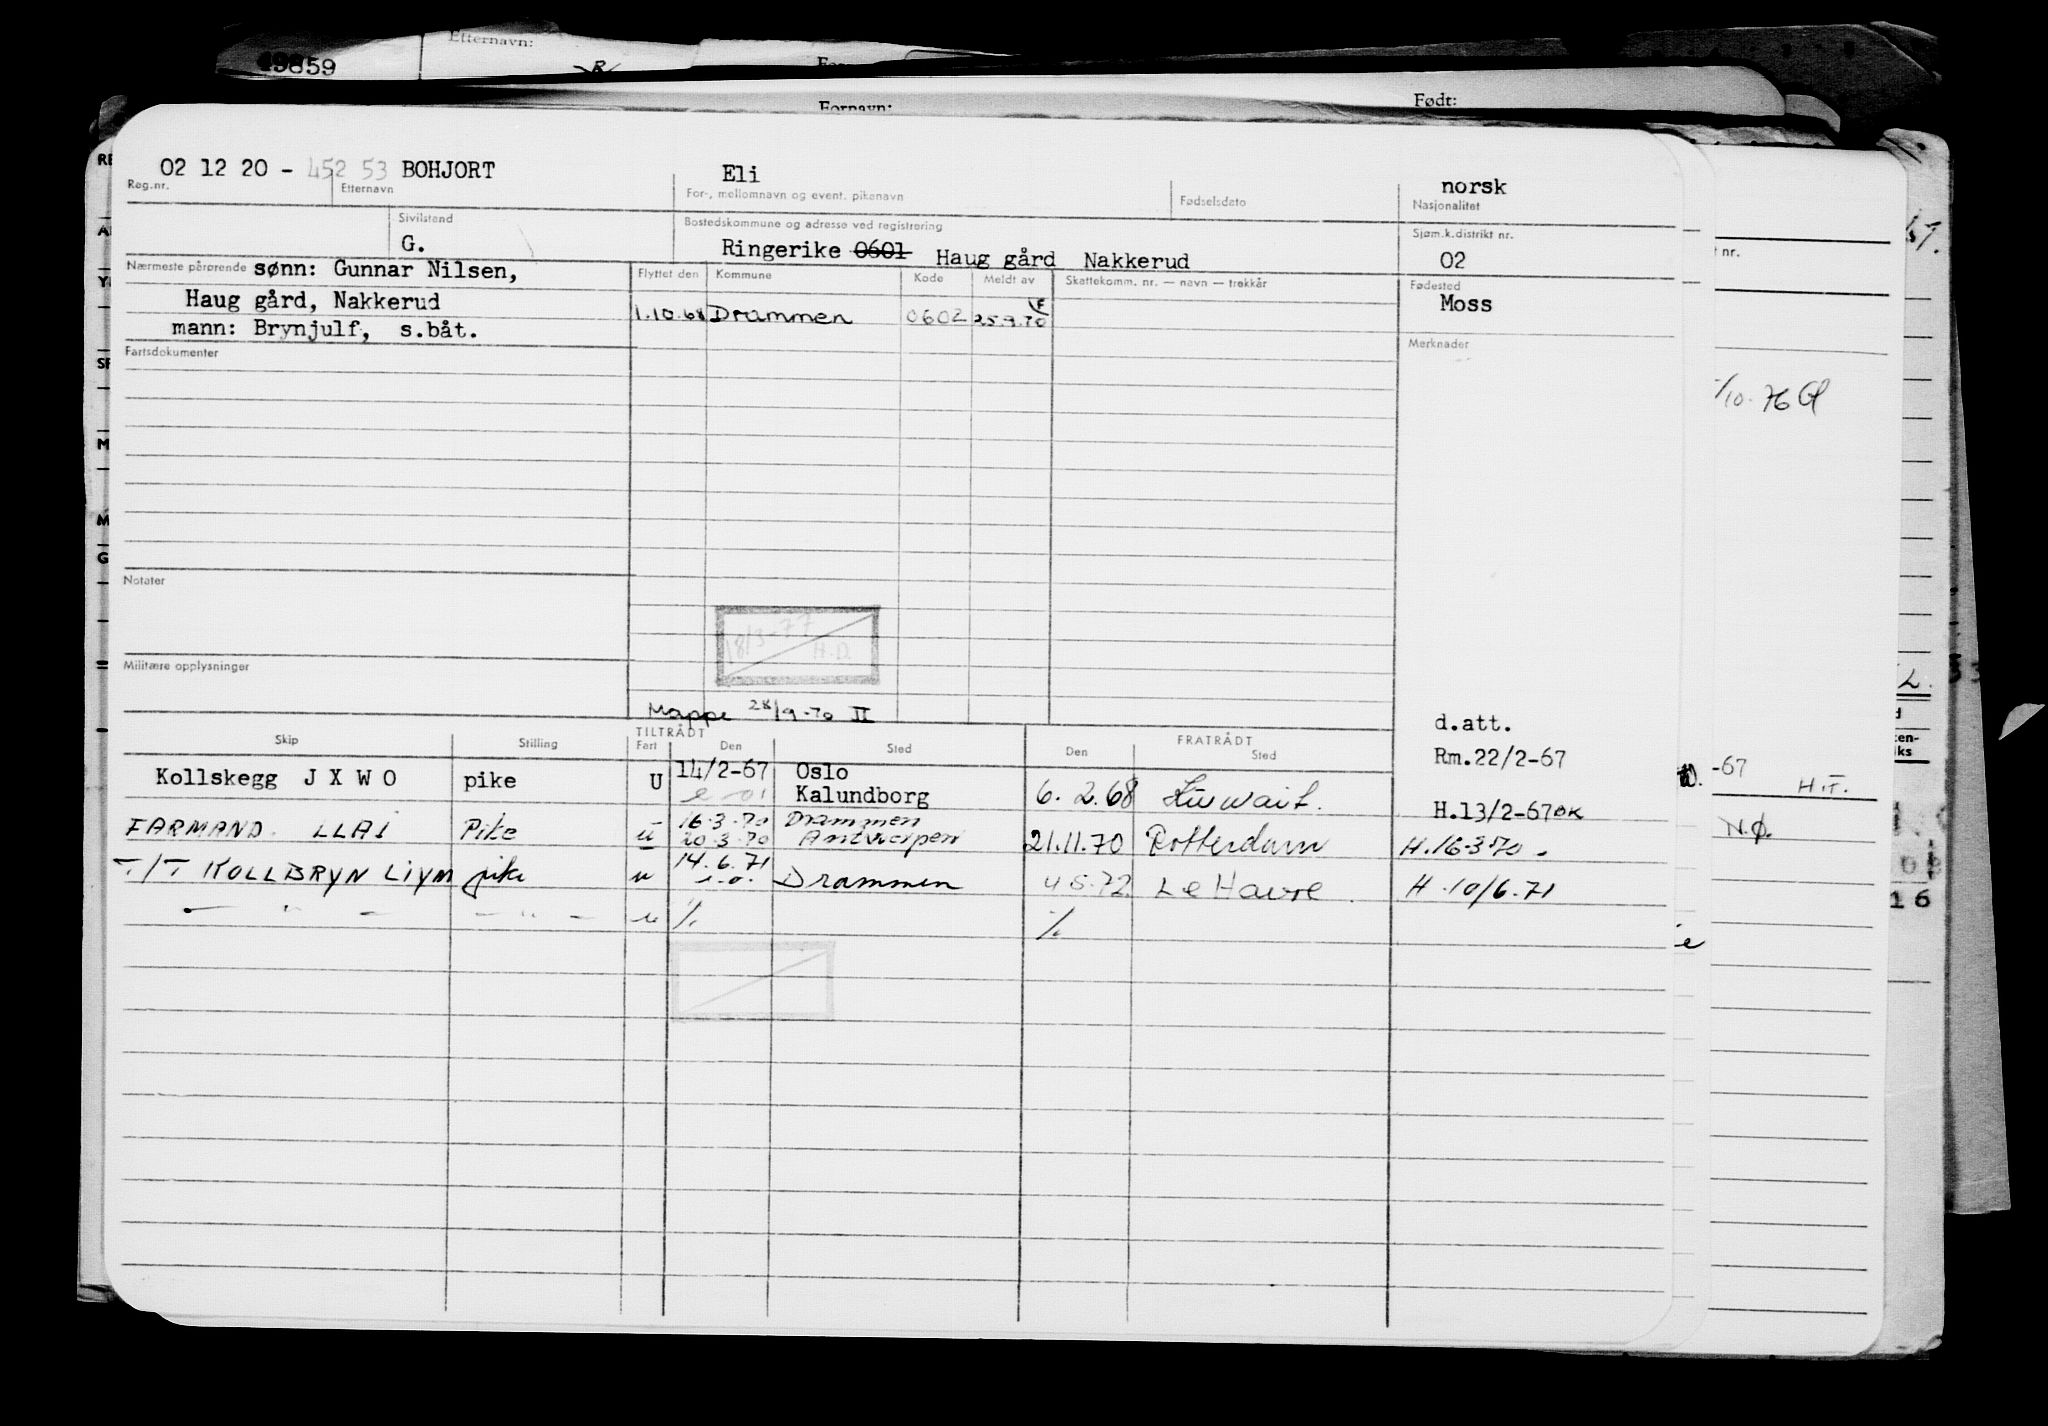 49859
Efternavn:
Fornavn:
Født:
02 12 20 - 452 53 BOHJORT Eli norsk
Reg.nr. Etternavn For-, mellomnavn og event. pikenavn Fødselsdato Nasjonalitet
Sivilstand Bostedskommune og adresse ved registrering Sjøm.k.distrikt nr.
G. Ringerike 0601 Haug gård Nakkerud 02
Nærmeste pårørende sønn: Gunnar Nilsen, Flyttet den Kommune Kode Meldt av Skattekomm. nr. — navn — trekkår Fødested
Haug gård, Nakkerud Moss
1.10.68 Drammen 0602 25.9.70
mann: Brynjulf, s.båt.
Fartsdokumenter Merknader
Notater
18/3-77
H.D.
Militære opplysninger
Mappe 28/9-70 II
d.att.
TILTRÅDT FRATRÅDT
Skip Stilling Fart Den Sted Den Sted
Rm.22/2-67
Kollskegg J X W O pike U 14/2-67 Oslo
Kalundborg 6.2.68 Kuwait.
H.13/2-67 OK
FARMAND. LLAI Pike u 16.3.70 Drammen
20.3.70 Antwerpen 21.11.70 Rotterdam H.16-3-70.
T/T KOLLBRYN LIYM pike u 14.6.71
s.d. Drammen 4 5.72 Le Havre H.10/6.71
— " — — " — u %. %.
/10.76
-67 H.T.
N.Ø.
16